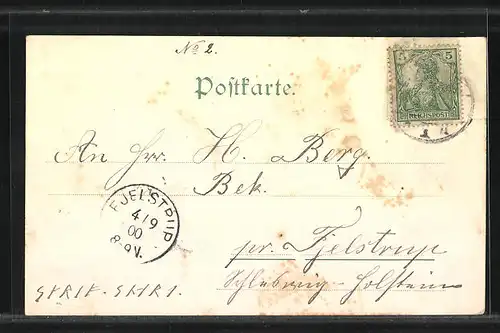 No 2.
Postkarte.
5 5
REICHSPOST
An Hr. H. Berg.
Bek.
FJELSTRUP
4/9
00
8-9V.
pr. Fjelstrup
Schleswig-Holstein